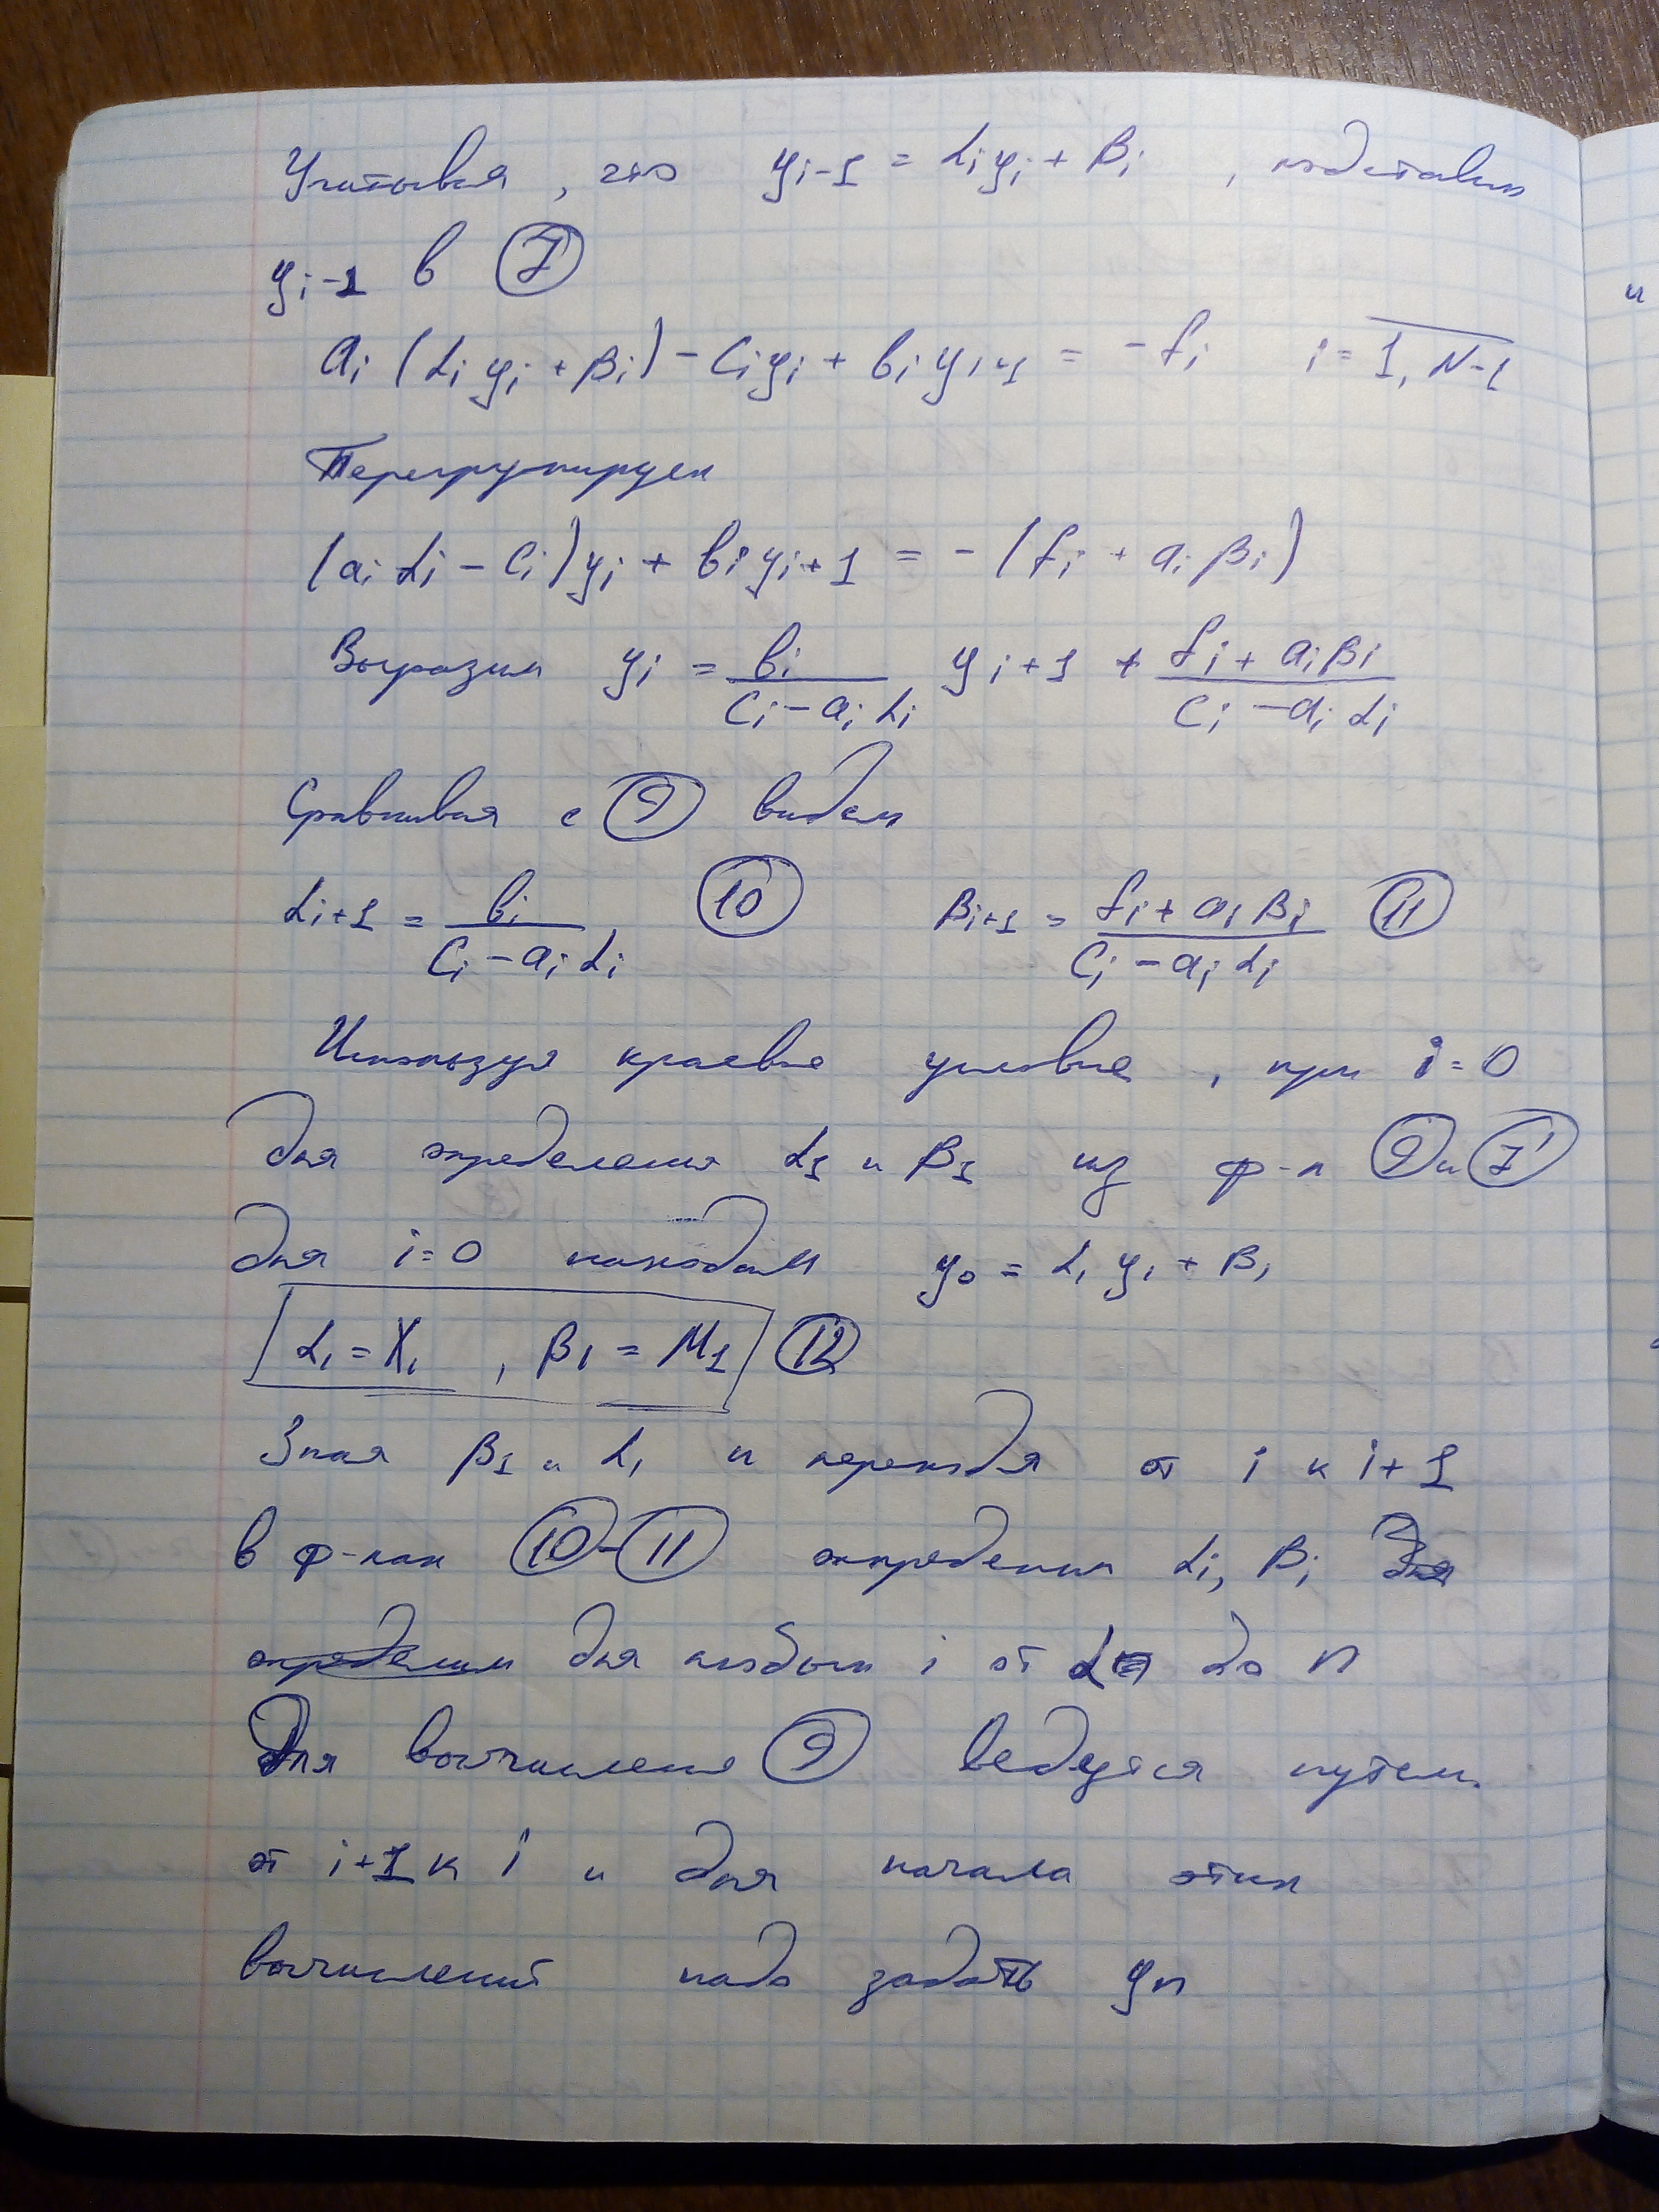 Учитывая, что y_{i-1} = α_i y_i + β_i, подставим
y_{i-1} в (7)
a_i (α_i y_i + β_i) - c_i y_i + b_i y_{i+1} = -f_i   i = 1, N-1
Перегрупируем
(a_i α_i - c_i) y_i + b_i y_{i+1} = -(f_i + a_i β_i)
Выразим y_i = b_i / (c_i - a_i α_i) y_{i+1} + (f_i + a_i β_i) / (c_i - a_i α_i)
Сравнивая с (9) видем
α_{i+1} = b_i / (c_i - a_i α_i) (10)   β_{i+1} = (f_i + a_i β_i) / (c_i - a_i α_i) (11)
Используя краевые условие, при i = 0
для определения α_1 и β_1 из ф-л (9) и (7')
для i = 0 находим y_0 = α_1 y_1 + β_1
α_1 = χ_1, β_1 = M_1 (12)
Зная β_1 и α_1 и переходя от i к i+1
в ф-лах (10)-(11) определим α_i, β_i для
определим для любых i от до n
Для вычисления (9) ведуться путем
от i+1 к i и для начала этих
вычислений надо задать y_n